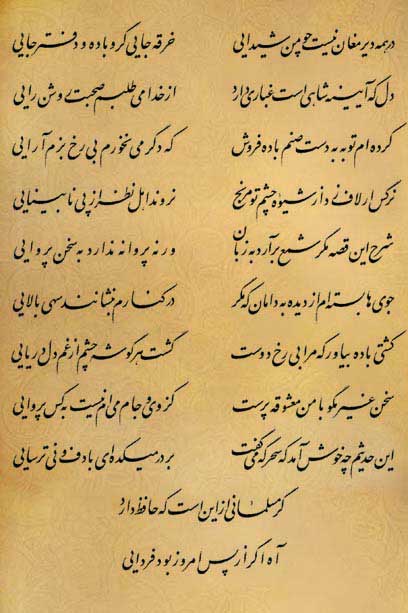 در همه دیر مغان نیست چو من شیدایی خرقه جایی گرو باده و دفتر جایی
دل که آیینه شاهی است غباری دارد از خدا می طلبم صحبت روشن رایی
کرده ام توبه به دست صنم باده فروش که دگر می نخورم بی رخ بزم آرایی
نرگس ار لاف زد از شیوه چشم تو مرنج نروند اهل نظر از پی نابینایی
شرح این قصه مگر شمع برآرد به زبان ورنه پروانه ندارد به سخن پروایی
جوی ها بسته ام از دیده به دامان که مگر در کنارم بنشانند سهی بالایی
کشتی باده بیاور که مرا بی رخ دوست گشت هر گوشه چشم از غم دل دریایی
سخن غیر مگو با من معشوقه پرست کز وی و جام می ام نیست به کس پروایی
این حدیثم چه خوش آمد که سحرگه می گفت بر در میکده ای با دف و نی ترسایی
گر مسلمانی از این است که حافظ دارد
آه اگر از پس امروز بود فردایی